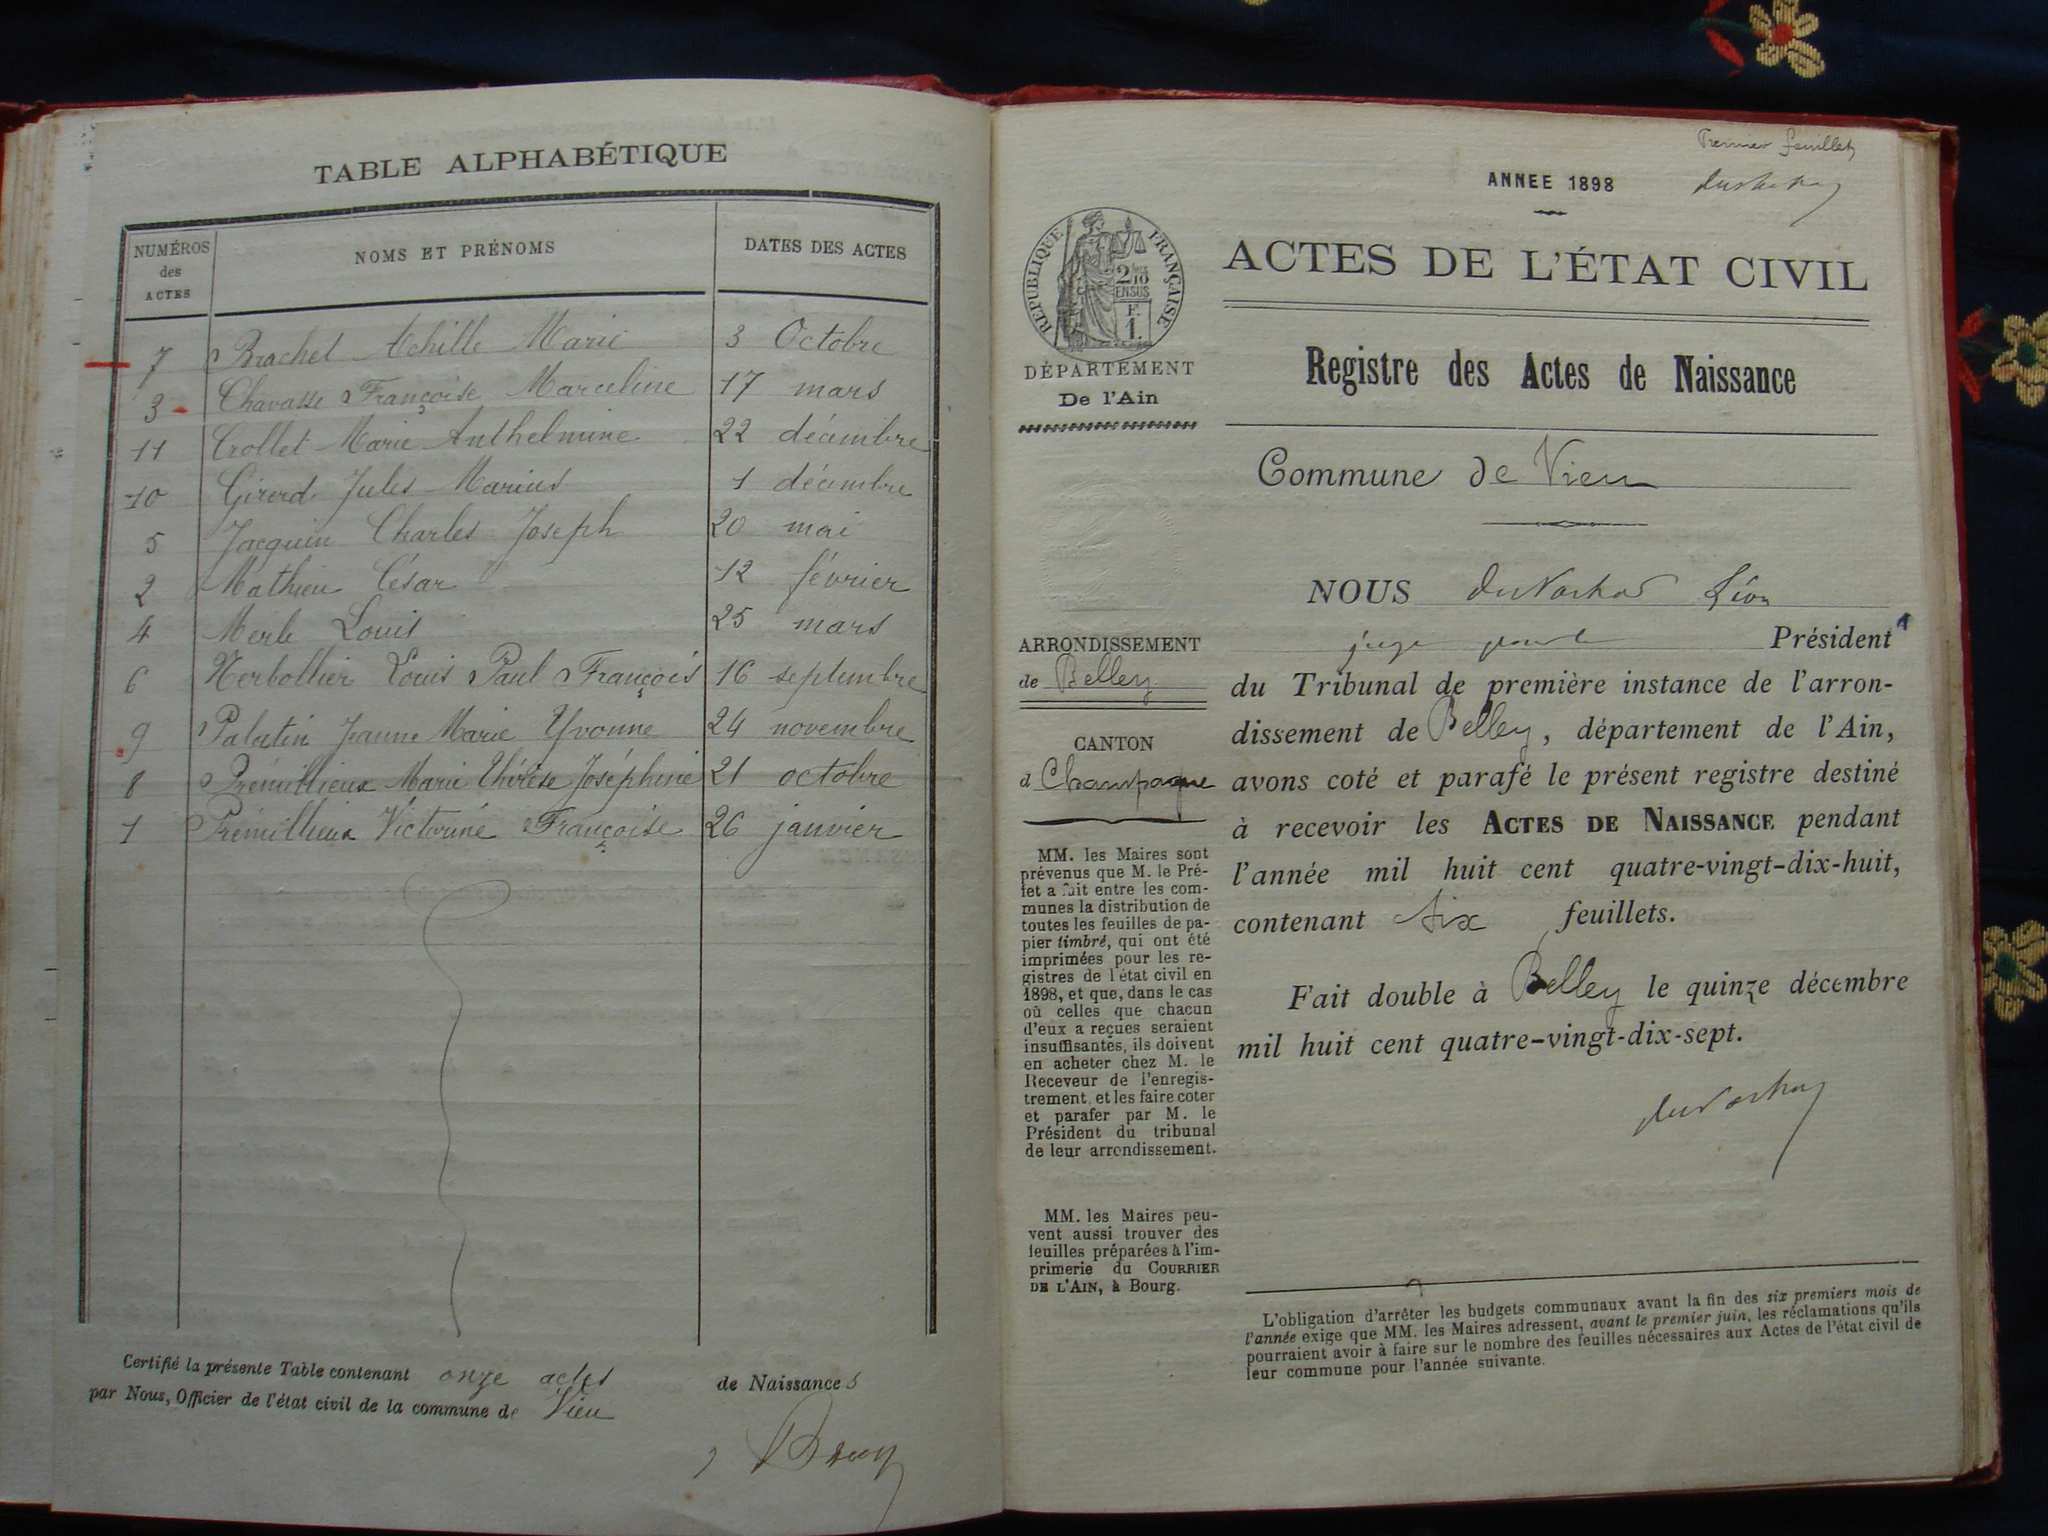 TABLE ALPHABÉTIQUE
NUMÉROS des ACTES
NOMS ET PRÉNOMS
DATES DES ACTES
7 Brachet Achille Marie 3 Octobre
3 Chavasse Françoise Marceline 17 mars
11 Crollet Marie Anthelmine 22 décembre
10 Girerd Jules Marius 1 décembre
5 Jacquin Charles Joseph 20 mai
2 Mathieu César 12 février
4 Merle Louis 25 mars
6 Nerbollier Louis Paul François 16 septembre
9 Palatin Jeanne Marie Yvonne 24 novembre
8 Prémillieux Marie Thérèse Joséphine 21 octobre
1 Prémillieux Victorine Françoise 26 janvier
Certifié la présente Table contenant onze actes de Naissances
par Nous, Officier de l'état civil de la commune de Vieu
Premier feuillet
ANNEE 1898
RÉPUBLIQUE FRANÇAISE
ACTES DE L'ÉTAT CIVIL
DÉPARTEMENT
De l'Ain
Registre des Actes de Naissance
Commune de Vieu
NOUS Léon
juge pour le Président
du Tribunal de première instance de l'arron-
dissement de Belley, département de l'Ain,
avons coté et parafé le présent registre destiné
à recevoir les ACTES DE NAISSANCE pendant
l'année mil huit cent quatre-vingt-dix-huit,
contenant six feuillets.
Fait double à Belley le quinze décembre
mil huit cent quatre-vingt-dix-sept.
ARRONDISSEMENT
de Belley
CANTON
d Champagne
MM. les Maires sont
prévenus que M. le Pré-
fet a fait entre les com-
munes la distribution de
toutes les feuilles de pa-
pier timbré, qui ont été
imprimées pour les re-
gistres de l'état civil en
1898, et que, dans le cas
où celles que chacun
d'eux a reçues seraient
insuffisantes, ils doivent
en acheter chez M. le
Receveur de l'enregis-
trement, et les faire coter
et parafer par M. le
Président du tribunal
de leur arrondissement.
MM. les Maires peu-
vent aussi trouver des
feuilles préparées à l'im-
primerie du COURRIER
DE L'AIN, à Bourg.
L'obligation d'arrêter les budgets communaux avant la fin des six premiers mois de
l'année exige que MM. les Maires adressent, avant le premier juin, les réclamations qu'ils
pourraient avoir à faire sur le nombre des feuilles nécessaires aux Actes de l'état civil de
leur commune pour l'année suivante.